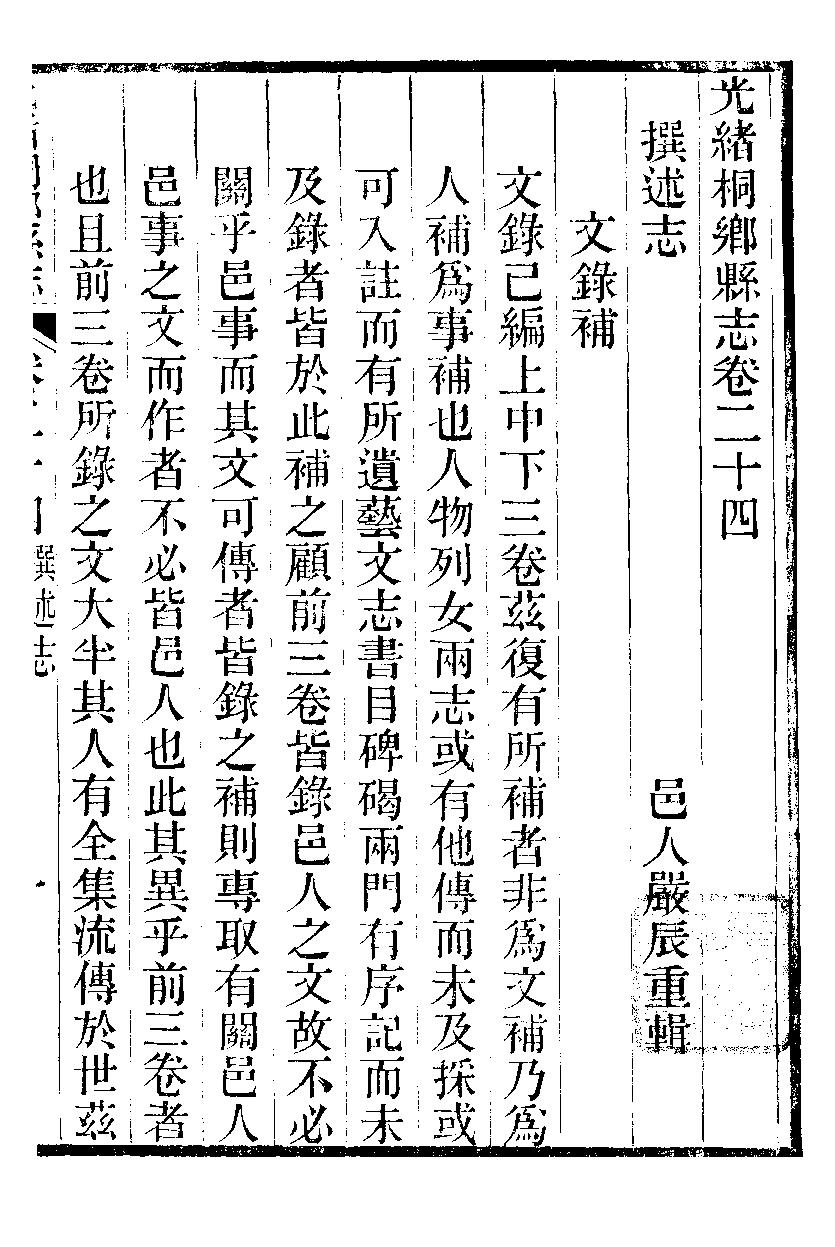 光緒桐鄉縣志卷二十四
撰述志　邑人嚴辰重輯
文錄補
文錄已編上中下三卷茲復有所補者非爲文補乃爲
人補爲事補也人物列女兩志或有他傳而未及採或
可入註而有所遺藝文志書目碑碣兩門有序記而未
及錄者皆於此補之顧前三卷皆錄邑人之文故不必
關乎邑事而其文可傳者皆錄之補則專取有關邑人
邑事之文而作者不必皆邑人也此其異乎前三卷者
也且前三卷所錄之文大半其人有全集流傳於世茲
撰述志